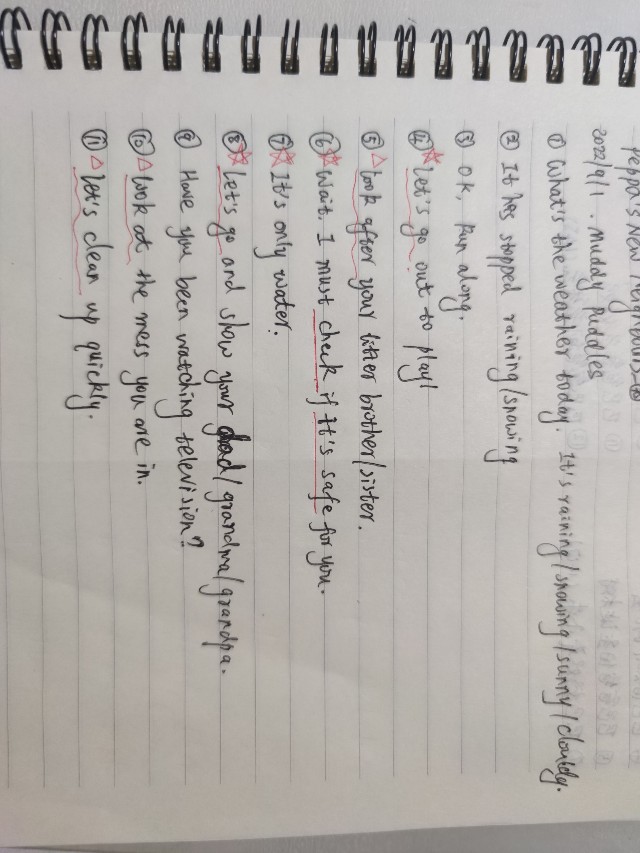 Peppa's New
2022/9/1. Muddy Puddles
① What's the weather today. It's raining/snowing/sunny/cloudy.
② It has stopped raining/snowing
③ OK, Run along.
④ ☆ Let's go out to play!
⑤ △ Look after your litter brother/sister.
⑥ ☆ Wait. I must check if it's safe for you.
⑦ ☆ It's only water.
⑧ ☆ Let's go and show your dad/grandma/grandpa.
⑨ Have you been watching television?
⑩ △ Look at the mess you are in.
⑪ △ Let's clean up quickly.